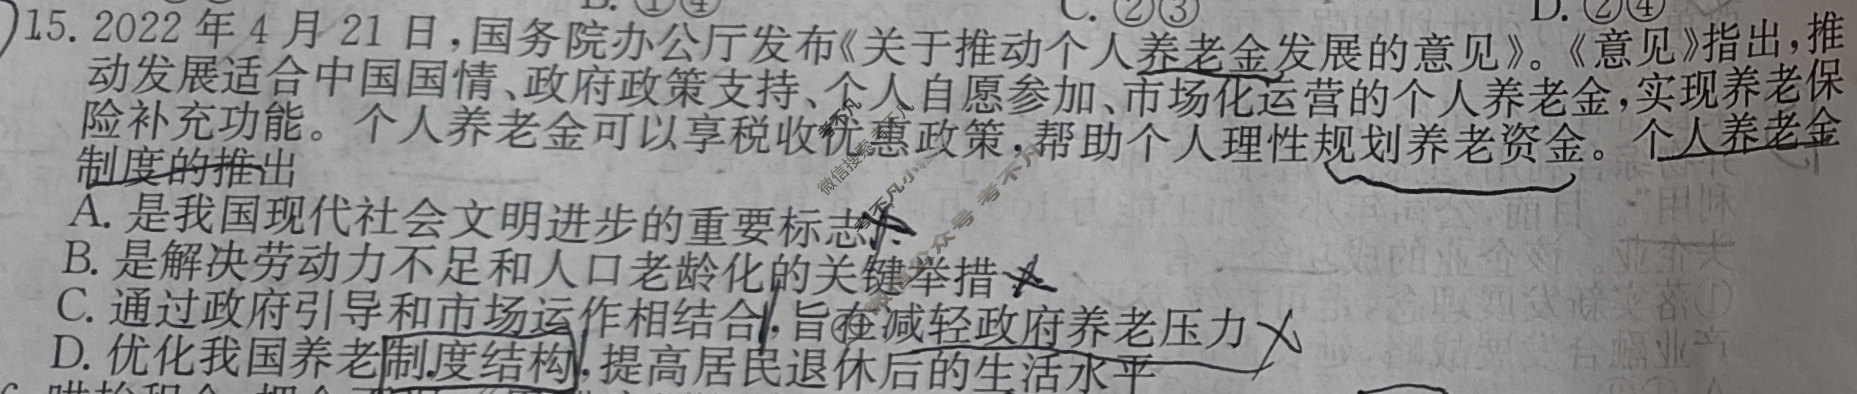 B. ①④ C. ②③ D. ②④
15. 2022 年 4 月 21 日,国务院办公厅发布《关于推动个人养老金发展的意见》。《意见》指出,推
动发展适合中国国情、政府政策支持、个人自愿参加、市场化运营的个人养老金,实现养老保
险补充功能。个人养老金可以享税收优惠政策,帮助个人理性规划养老资金。个人养老金
制度的推出
A. 是我国现代社会文明进步的重要标志
B. 是解决劳动力不足和人口老龄化的关键举措
C. 通过政府引导和市场运作相结合,旨在减轻政府养老压力
D. 优化我国养老制度结构,提高居民退休后的生活水平